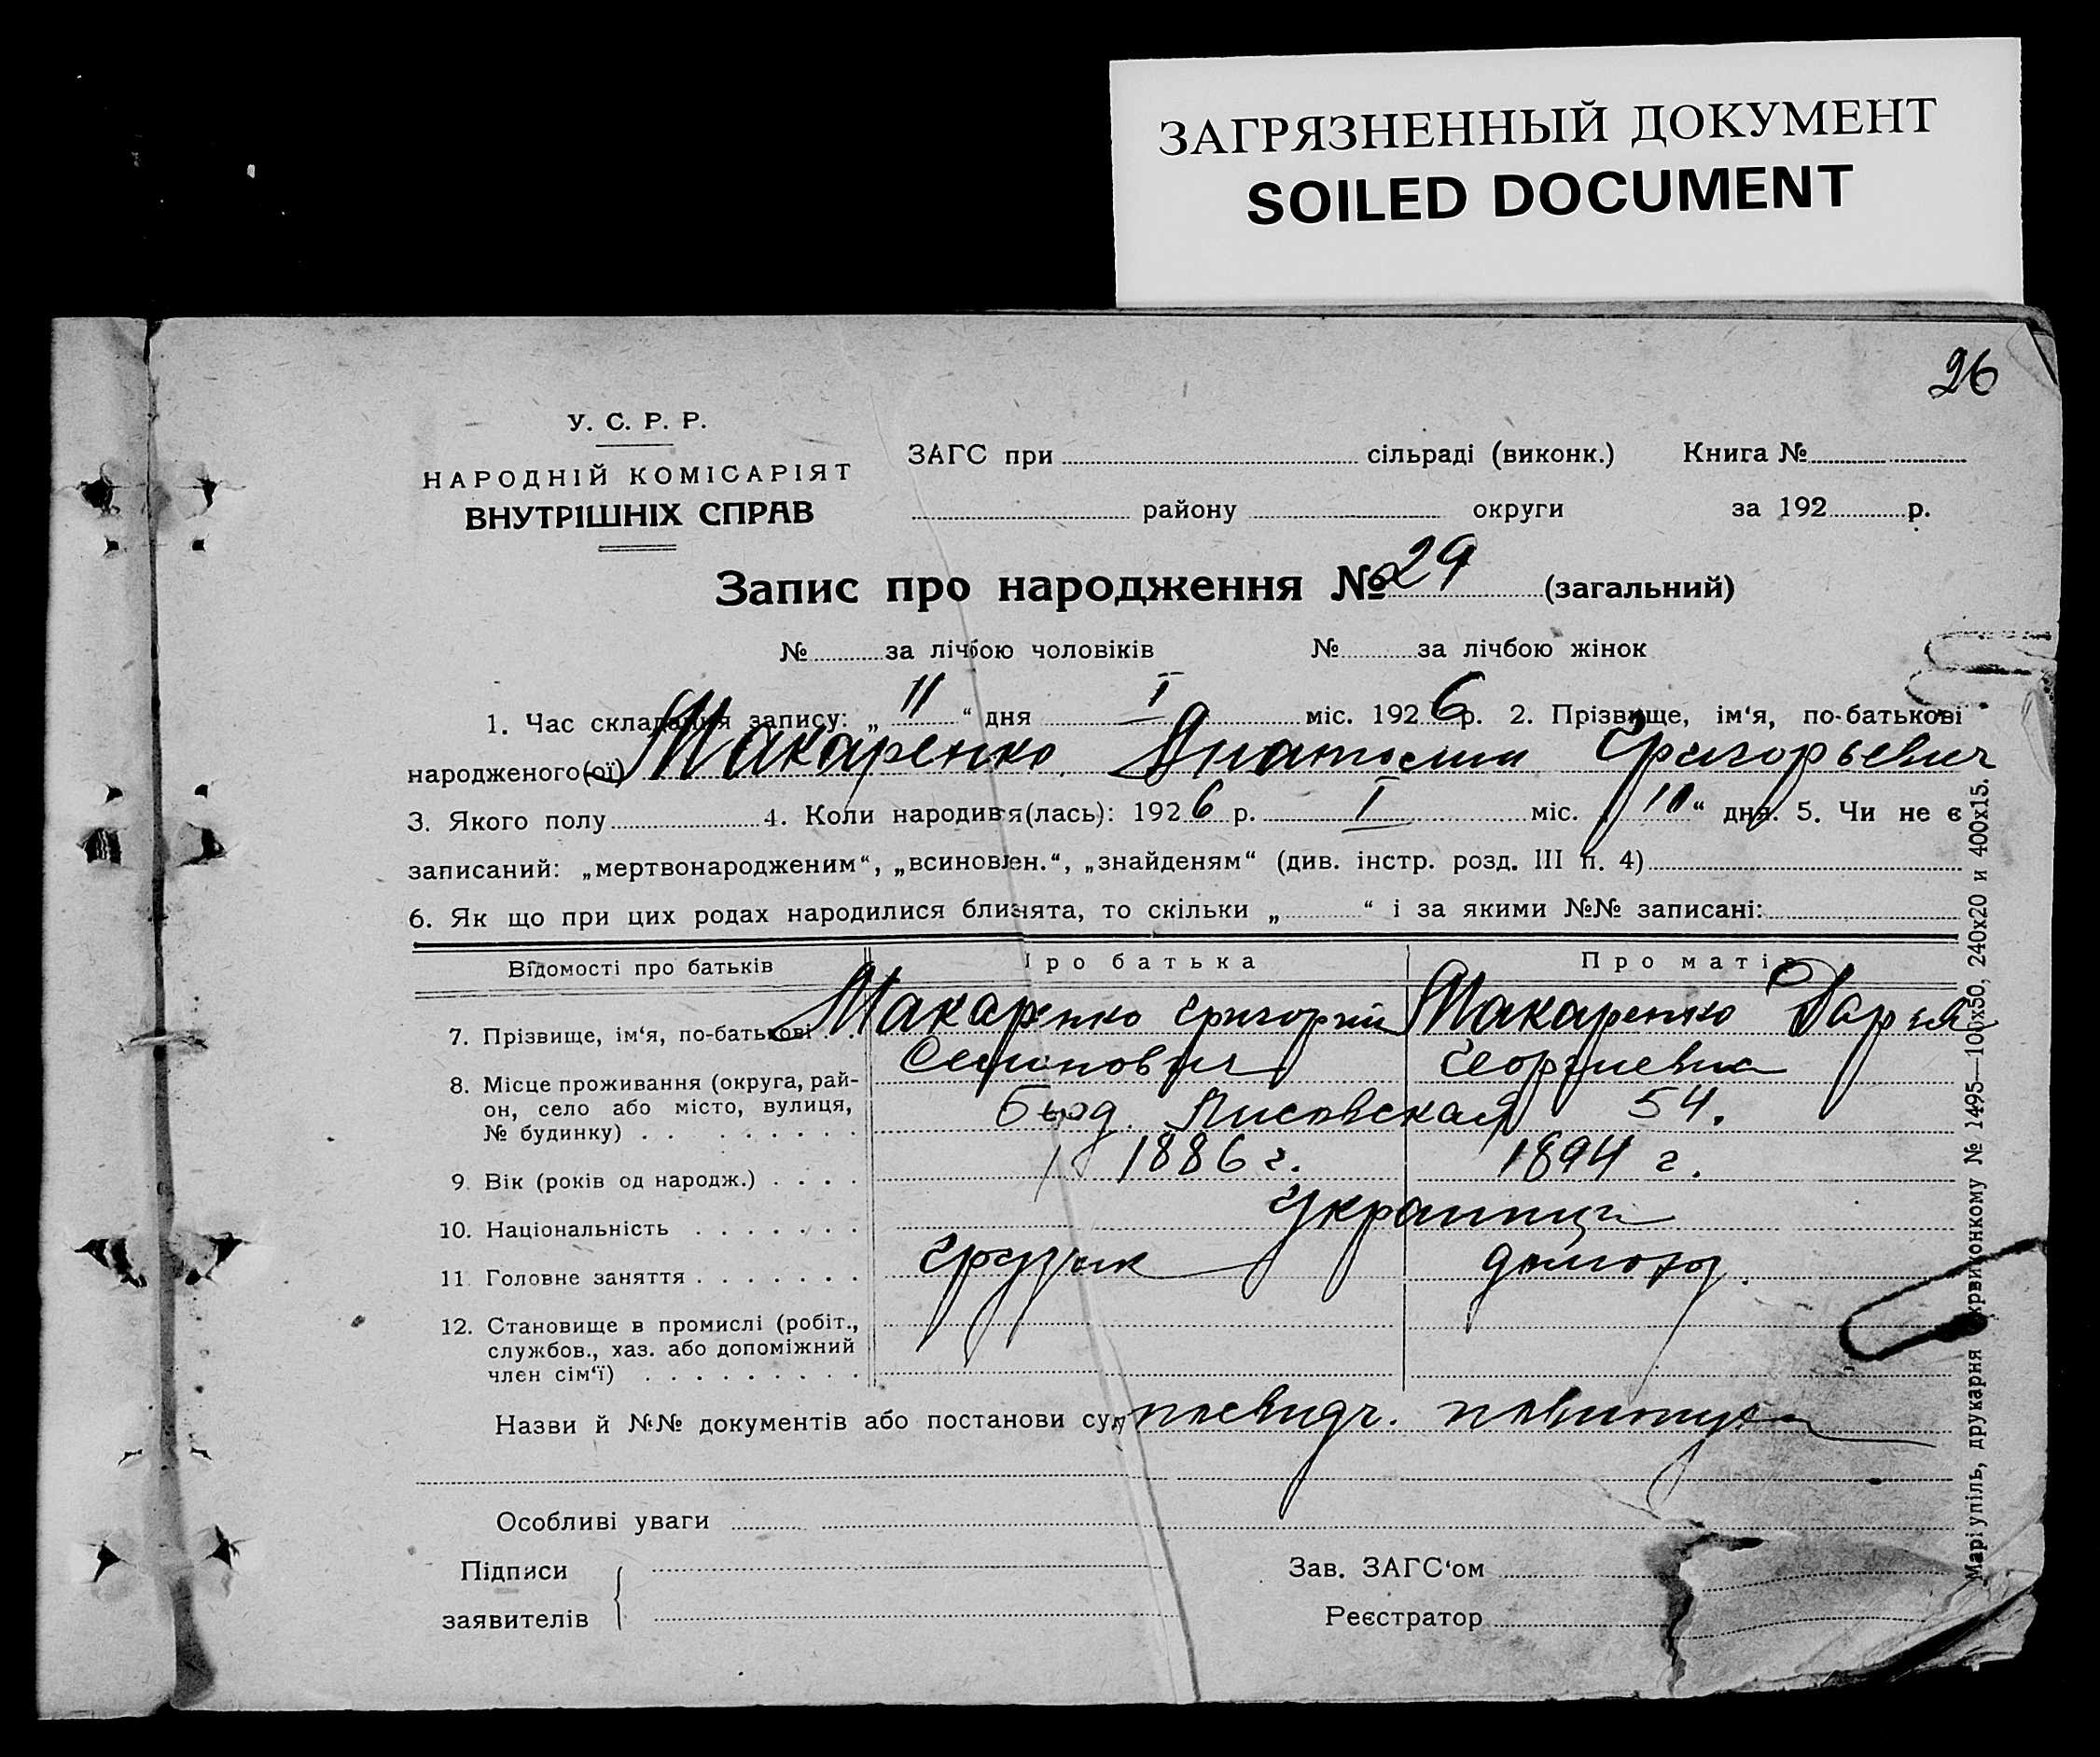 ЗАГРЯЗНЕННЫЙ ДОКУМЕНТ
SOILED DOCUMENT
26
У. С. Р. Р.
НАРОДНІЙ КОМІСАРІЯТ
ВНУТРІШНІХ СПРАВ
ЗАГС при сільраді (виконк.) Книга №
району округи за 192 р.
Запис про народження № 29 (загальний)
№ за лічбою чоловіків № за лічбою жінок
1. Час складання запису: „ 11 “ дня I міс. 1926 р. 2. Прізвище, ім‘я, по-батькові
народженого(ої) Макаренко Анатолий Григорьевич
3. Якого полу 4. Коли народився(лась): 1926 р. I міс. „ “ дня. 5. Чи не є
записаний: „мертвонародженим“, „всиновлен.“, „знайденям“ (див. інстр. розд. III п. 4)
6. Як що при цих родах народилися близнята, то скільки „ “ і за якими №№ записані:
Відомості про батьків Про батька Про матір
7. Прізвище, ім‘я, по-батькові . . Макаренко Григорий Макаренко Дарья
Семенович Георгиевна
8. Місце проживання (округа, рай-
он, село або місто, вулиця, Лисовская 54.
№ будинку) . . . . . . . .
9. Вік (років од народж.) . . . . 1886 г. 1894 г.
10. Національність . . . . . . . Украинцы
11. Головне заняття . . . . . . . грузчик домохоз.
12. Становище в промислі (робіт.,
службов., хаз. або допоміжний
член сім‘ї) . . . . . . . . .
Назви й №№ документів або постанови суду
Особливі уваги
Підписи
заявителів
Зав. ЗАГС‘ом
Реєстратор
Маріупіль, друкарня Окрвиконкому № 1495—100х50, 240х20 и 400х15.